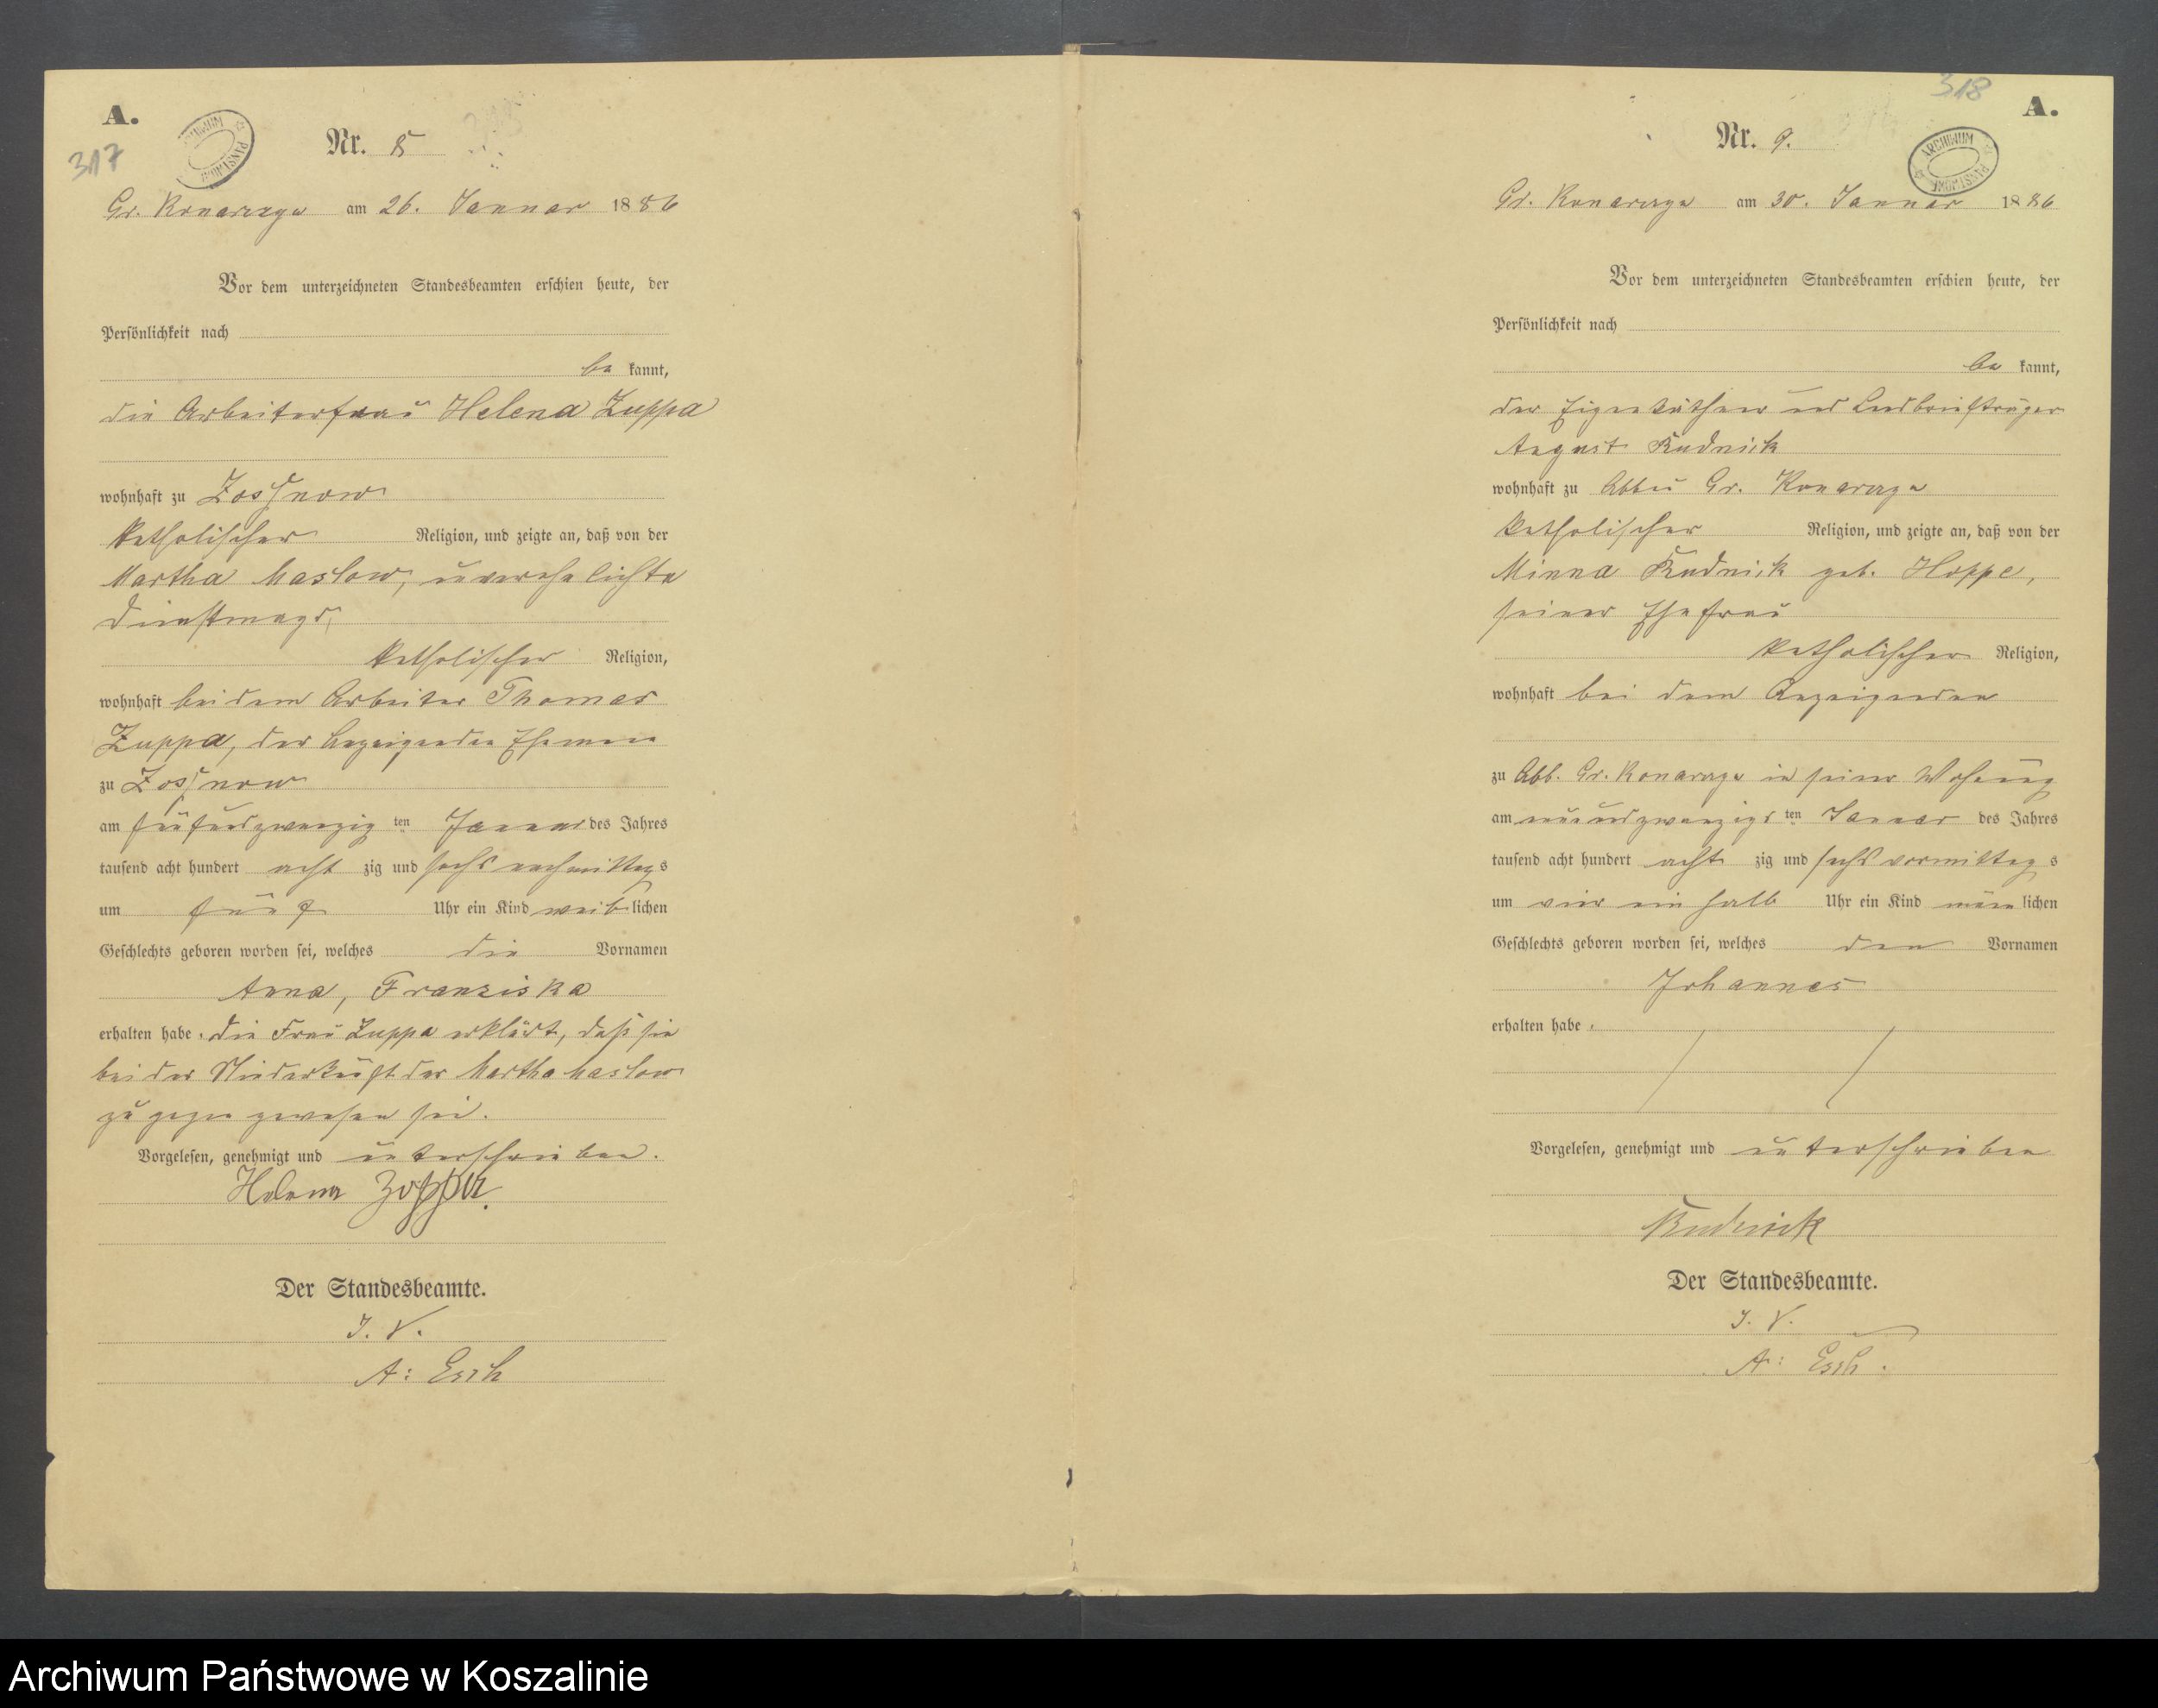 A.
317
ARCHIWUM PAŃSTWOWE
Nr. 8
Gr. Konarczyn am 26. Januar 1886
Vor dem unterzeichneten Standesbeamten erschien heute, der
Persönlichkeit nach
be kannt,
die Arbeiterfrau Helena Zuppa
wohnhaft zu Zossnow
katholischer Religion, und zeigte an, daß von der
Martha Maslow, unverehelichte
Dienstmagd,
katholischer Religion,
wohnhaft bei dem Arbeiter Thomas
Zuppa, der Anzeigenden Ehemann
zu Zossnow
am fünfundzwanzig ten Januar des Jahres
tausend acht hundert acht zig und sechs nachmittags
um fünf Uhr ein Kind weiblichen
Geschlechts geboren worden sei, welches die Vornamen
Anna, Franziska
erhalten habe. Die Frau Zuppa erklärt, daß sie
bei der Niederkunft der Martha Maslow
zugegen gewesen sei.
Vorgelesen, genehmigt und unterschrieben.
Helena
Der Standesbeamte.
I. V.
A: Esch
318
A.
ARCHIWUM PAŃSTWOWE
Nr. 9.
Gr. Konarczyn am 30. Januar 1886
Vor dem unterzeichneten Standesbeamten erschien heute, der
Persönlichkeit nach
be kannt,
der Eigenkäthner und Landbriefträger
August Rudnick
wohnhaft zu Abbau Gr. Konarczyn
katholischer Religion, und zeigte an, daß von der
Minna Rudnick geb. Hoppe,
seiner Ehefrau
katholischer Religion,
wohnhaft bei dem Anzeigenden
zu Abb. Gr. Konarczyn in seiner Wohnung
am neunundzwanzigs ten Januar des Jahres
tausend acht hundert acht zig und sechs vormittags
um vier ein halb Uhr ein Kind männlichen
Geschlechts geboren worden sei, welches den Vornamen
Johannes
erhalten habe.
Vorgelesen, genehmigt und unterschrieben
Rudnick
Der Standesbeamte.
I. V.
A: Esch.
Archiwum Państwowe w Koszalinie